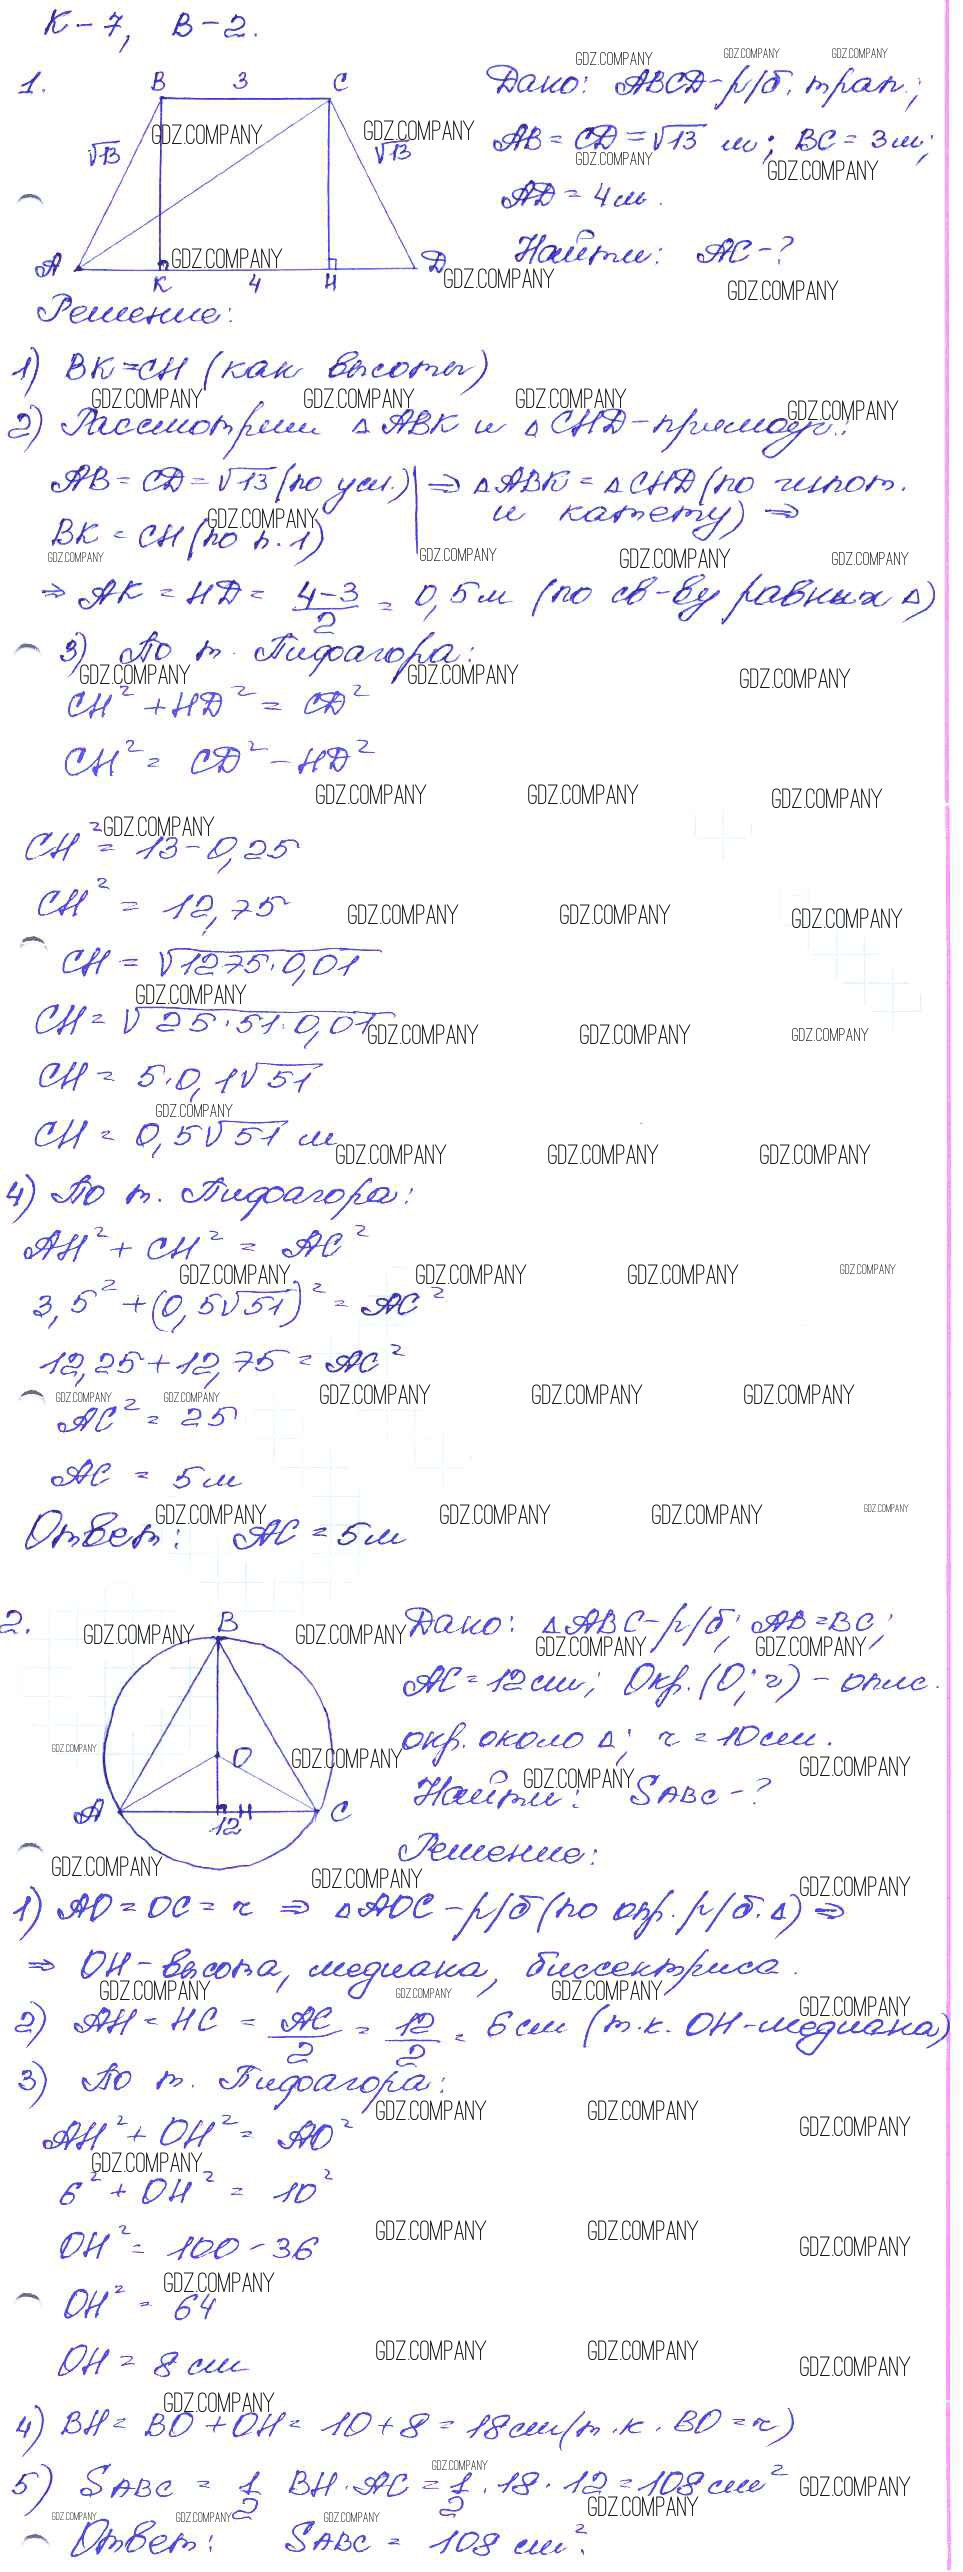 К-7, В-2.
1.
B 3 C
√13 √13
A K 4 H D
Дано: ABCD - р/б. трап.;
AB = CD = √13 м; BC = 3м;
AD = 4м.
Найти: AC - ?
Решение:
1) BK = CH (как высоты)
2) Рассмотрим △ABK и △CHD - прямоуг.:
AB = CD = √13 (по усл.) | ⇒ △ABK = △CHD (по гипот.
BK = CH (по п. 1) | и катету) ⇒
⇒ AK = HD = (4-3)/2 = 0,5м (по св-ву равных △)
3) По т. Пифагора:
CH² + HD² = CD²
CH² = CD² - HD²
CH² = 13 - 0,25
CH² = 12,75
CH = √1275·0,01
CH = √25·51·0,01
CH = 5·0,1√51
CH = 0,5√51 м
4) По т. Пифагора:
AH² + CH² = AC²
3,5² + (0,5√51)² = AC²
12,25 + 12,75 = AC²
AC² = 25
AC = 5м
Ответ: AC = 5м
2.
B
O
A H C
12
Дано: △ABC - р/б; AB = BC;
AC = 12см; Окр. (O; r) - опис.
окр. около △; r = 10см.
Найти: SABC - ?
Решение:
1) AO = OC = r ⇒ △AOC - р/б (по опр. р/б. △) ⇒
⇒ OH - высота, медиана, биссектриса.
2) AH = HC = AC/2 = 12/2 = 6см (т.к. OH - медиана)
3) По т. Пифагора:
AH² + OH² = AO²
6² + OH² = 10²
OH² = 100 - 36
OH² = 64
OH = 8 см
4) BH = BO + OH = 10 + 8 = 18см (т.к. BO = r)
5) SABC = 1/2 BH · AC = 1/2 · 18 · 12 = 108 см²
Ответ: SABC = 108 см².
GDZ.COMPANY